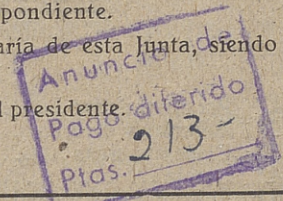 pondiente.
aría de esta Junta, siendo
l presidente.
Anuncio de
Pago diferido
Ptas. 213-